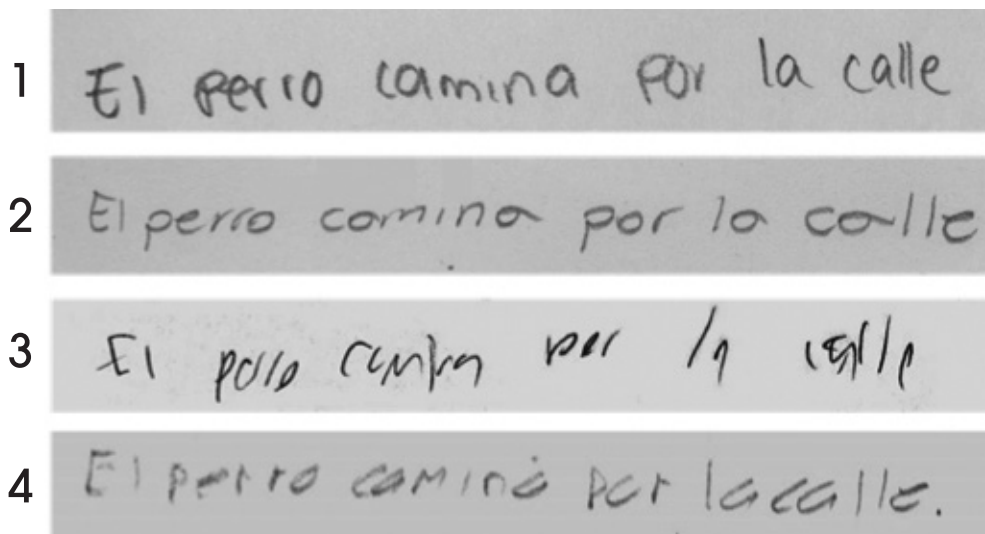 1 El perro camina por la calle
2 El perro camina por la calle
3 El perro camina por la calle
4 El perro camina por la calle.